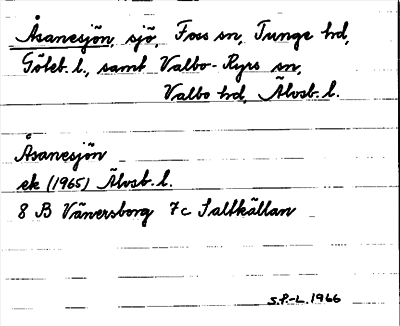 Åsanesjön, sjö, Foss sn, Tunge hd,
Göteb. l., samt Valbo-Ryrs sn,
Valbo hd, Älvsb. l.
Åsanesjön
ek (1965) Älvsb. l.
8 B Vänersborg 7c Saltkällan
S.P-L. 1966